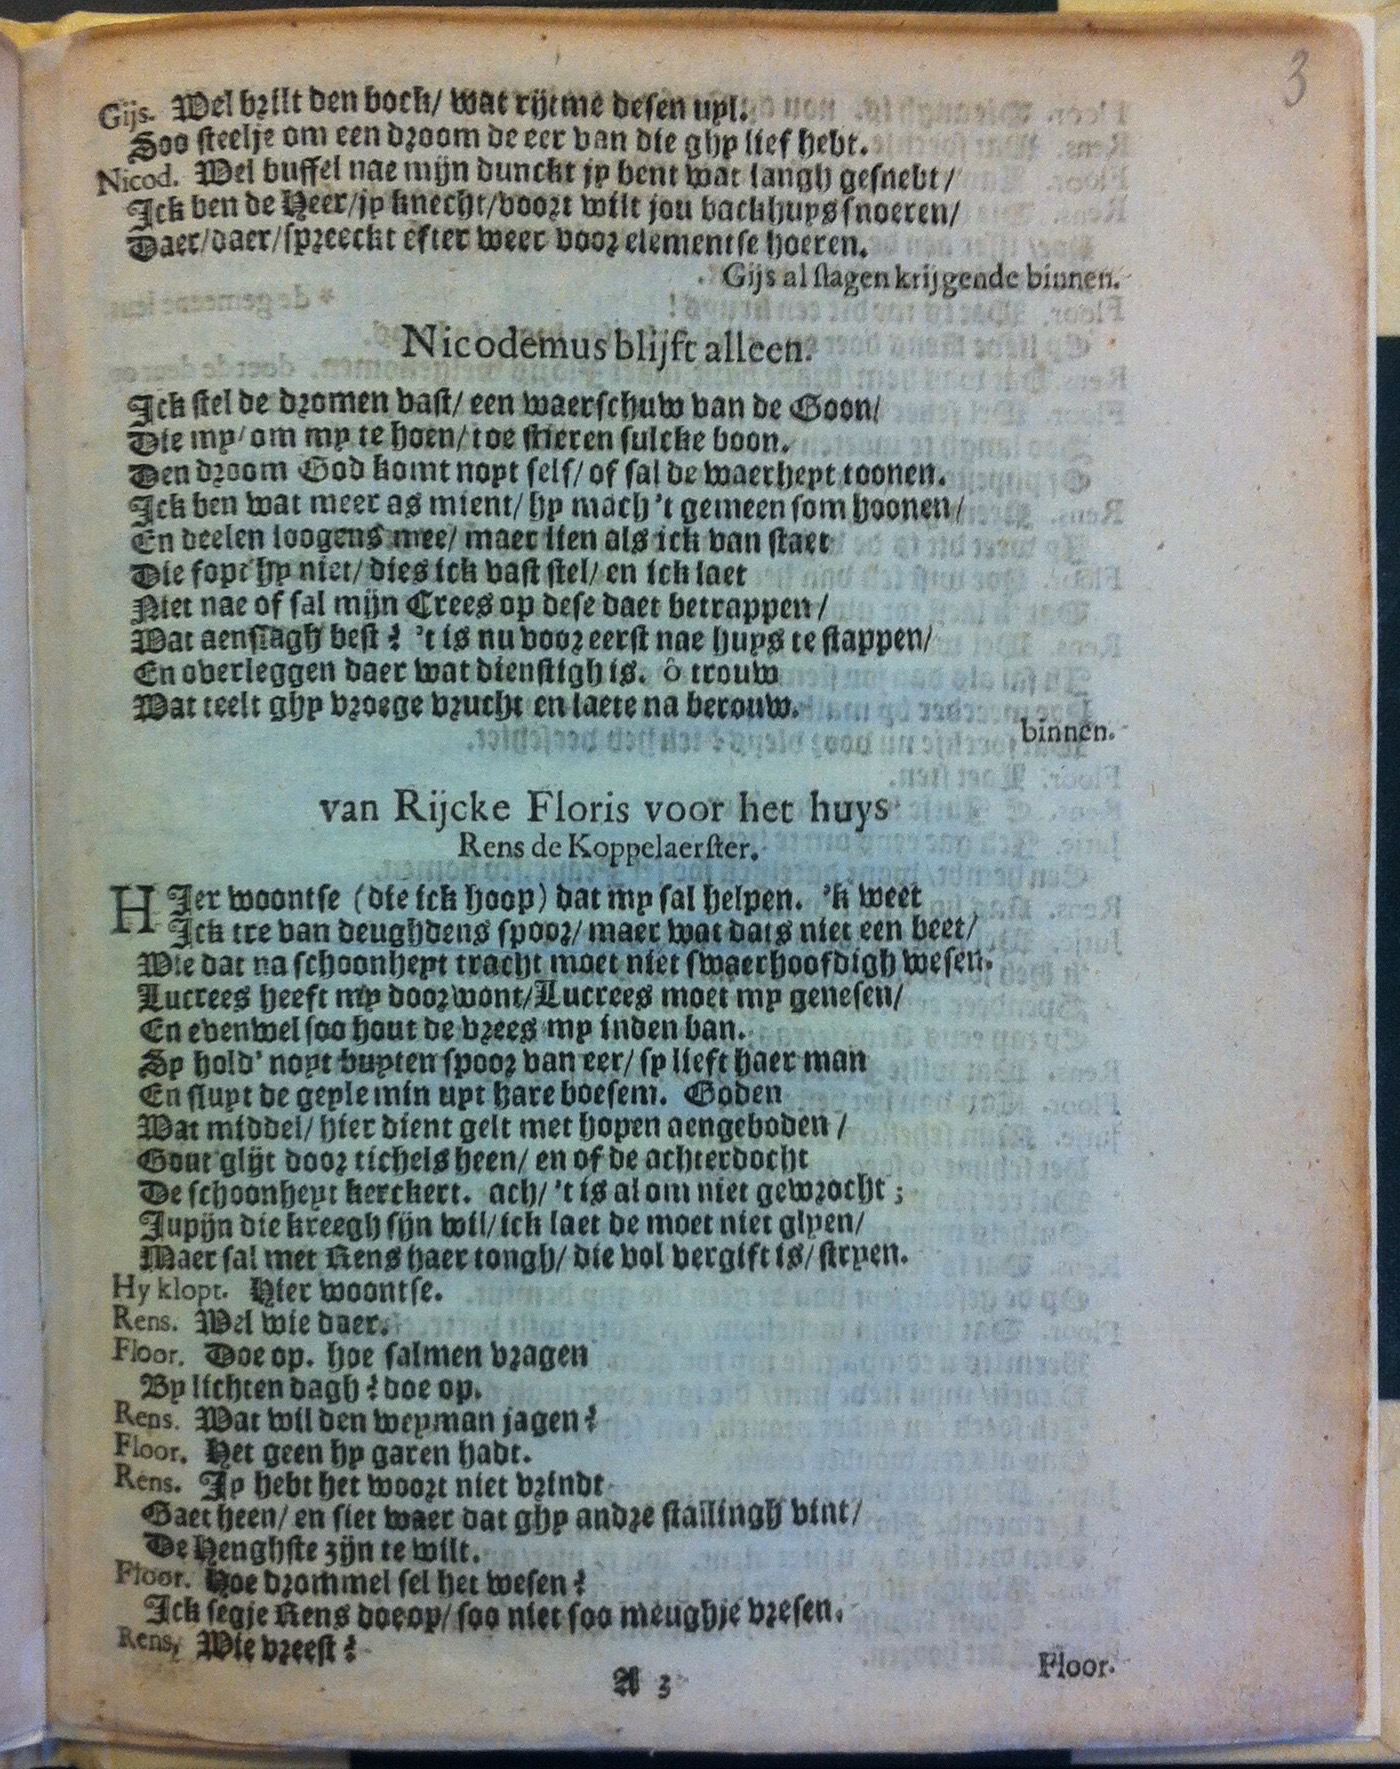 3
Gijs. Wel brilt den bock/ wat rijtme desen uyl.
Soo steelje om een droom de eer van die ghy lief hebt.
Nicod. Wel buffel nae mijn dunckt jy bent wat langh gesnebt/
Ick ben de Heer/jy knecht/voort wilt jou backhuys snoeren/
Daer/daer/spreeckt efter weer voor elementse hoeren.
Gijs al slagen krijgende binnen.
Nicodemus blijft alleen.
Ick stel de dromen vast/ een waerschuw van de Goon/
Die my/om my te hoen/toe stieren sulcke boon.
Den droom God komt noyt self/of sal de waerheyt toonen.
Ick ben wat meer as mient/ hy mach 't gemeen som hoonen/
En deelen loogens mee/ maer lien als ick van staet
Die fopt hy niet/ dies ick vast stel/ en ick laet
Niet nae of sal mijn Crees op dese daet betrappen/
Wat aenslagh best? 't is nu voor eerst nae huys te stappen/
En overleggen daer wat dienstigh is. ô trouw
Wat teelt ghy vroege vrucht en laete na berouw.
binnen.
van Rijcke Floris voor het huys
Rens de Koppelaerster.
HIer woontse (die ick hoop) dat my sal helpen. 'k weet
Ick tre van deughdens spoor/ maer wat dats niet een beet/
Wie dat na schoonheyt tracht moet niet swaerhoofdigh wesen.
Lucrees heeft my doorwont/Lucrees moet my genesen/
En evenwel soo hout de vrees my inden ban.
Sy hold' noyt buyten spoor van eer/ sy lieft haer man
En slupt de geyle min uyt hare boesem. Goden
Wat middel/ hier dient gelt met hopen aengeboden/
Gout glijt door tichels heen/ en of de achterdocht
De schoonheyt kerckert. ach/ 't is al om niet gewrocht;
Jupijn die kreegh sijn wil/ick laet de moet niet glyen/
Maer sal met Rens haer tongh/ die vol vergift is/ stryen.
Hy klopt. Hier woontse.
Rens. Wel wie daer.
Floor. Doe op. hoe salmen vragen
By lichten dagh? doe op.
Rens. Wat wil den weyman jagen?
Floor. Het geen hy garen hadt.
Rens. Jy hebt het woort niet vrindt
Gaet heen/ en siet waer dat ghy andre stallingh vint/
De Henghste zijn te wilt.
Floor. Hoe drommel sel het wesen?
Ick segje Rens doeop/ soo niet soo meughje vresen.
Rens, Wie vreest?
A 3
Floor.